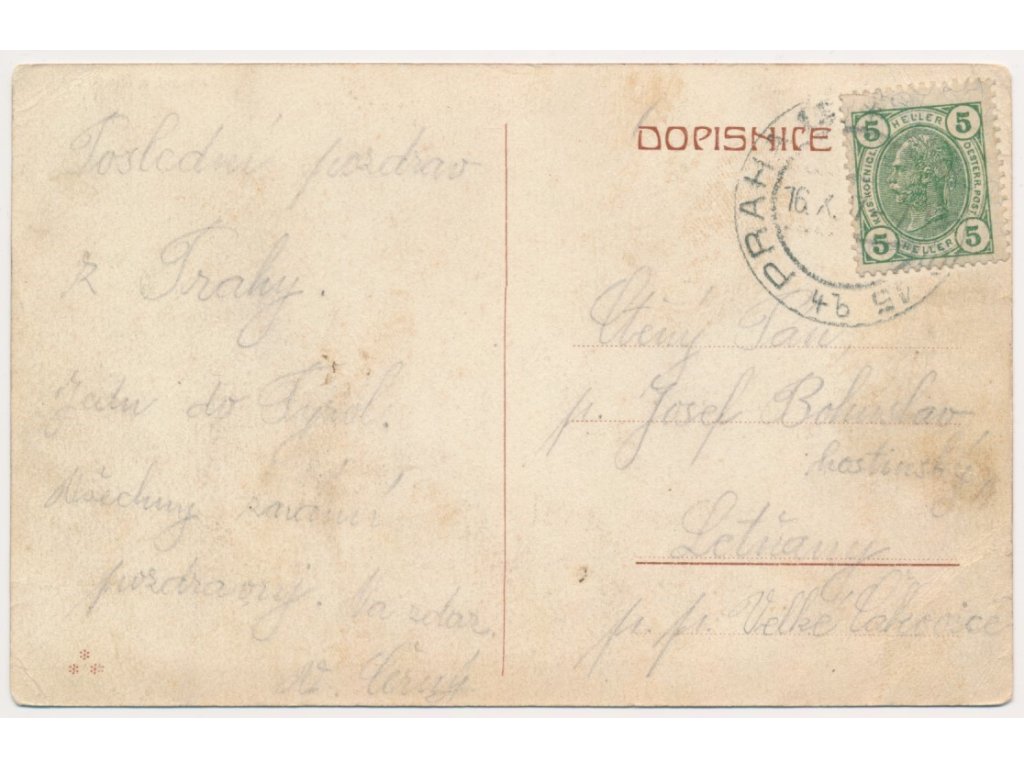 Poslední pozdrav
z Prahy.
Jedu do Tyrol.
Všechny známé
pozdravuj. Na zdar.
V. Černý
DOPISNICE
PRAHA
16. X.
5 HELLER 5
KAIS. KOENIGL. OESTERR. POST
5 HELLER 5
Ctěný Pan
p. Josef Bohuslav
hostinský
Letňany
p. p. Velké Čakovice